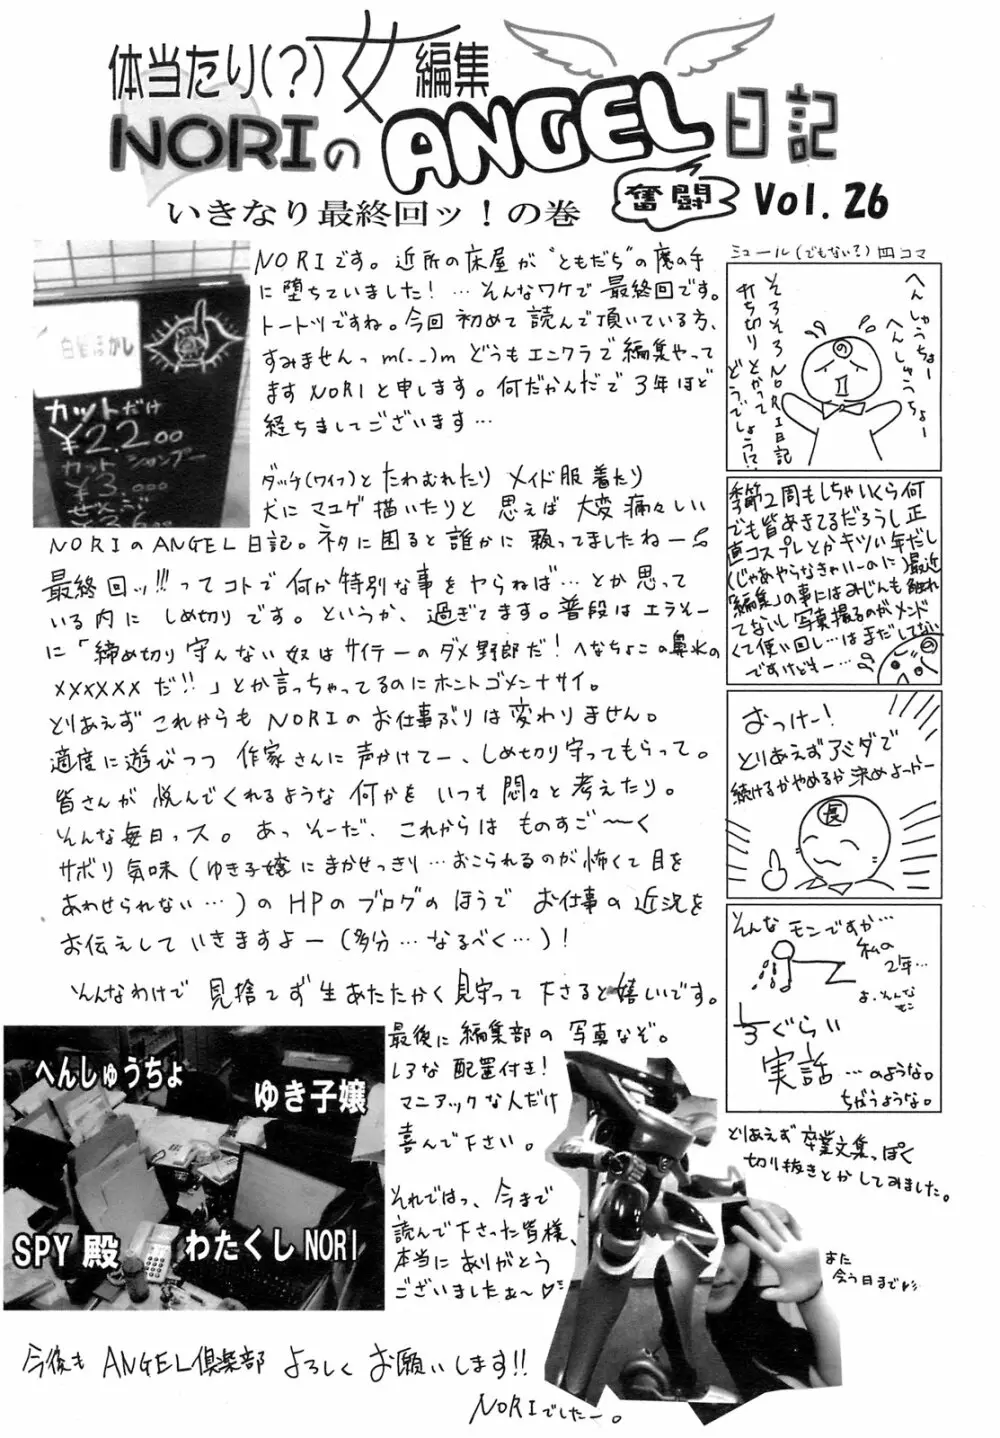 体当たり(?)女編集
NORIのANGEL日記
奮闘
Vol. 26
いきなり最終回ッ！の巻
白髪ぼかし
カットだけ
¥2.200
カット シャンプー
¥3.000
ぜんぶ
NORIです。近所の床屋が"ともだち"の魔の手
に堕ちていました! …そんなワケで最終回です。
トートツですね。今回初めて読んで頂いている方、
すみませんっ m(..)m どうもエンクラで編集やって
ますNORIと申します。何だかんだで3年ほど
経ちましてございます…
ダッチ(ワイフ)とたわむれたり メイド服着たり
犬にマユゲ描いたりと 思えば大変痛々しい
NORIのANGEL日記。ネタに困ると誰かに頼ってましたねー
最終回ッ!!!ってコトで何か特別な事をヤらねば…とか思って
いる内に しめ切りです。というか、過ぎてます。普段はエラそー
に「締め切り守んない奴はサイテーのダメ野郎だ!へなちょこの鼻水の
××××××だ!!」とか言っちゃってるのにホントゴメンナサイ。
とりあえずこれからもNORIのお仕事ぶりは変わりません。
適度に遊びつつ 作家さんに声かけてー、しめ切り守ってもらって。
皆さんが悦んでくれるような何かをいつも悶々と考えたり。
そんな毎日っス。あっそーだ、これからはものすご〜く
サボリ気味(ゆき子嬢にまかせっきり…おこられるのが怖くて目を
あわせられない…)のHPのブログのほうで お仕事の近況を
お伝えしていきますよー(多分…なるべく…)!
そんなわけで 見捨てず生あたたかく見守って下さると嬉しいです。
最後に編集部の写真なぞ。
しろな配置付き!
マニアックな人だけ
喜んで下さい。
それではっ、今まで
読んで下さった皆様、
本当にありがとう
ございましたぁ〜♡
へんしゅうちょ
ゆき子嬢
SPY殿
わたくしNORI
今後もANGEL倶楽部 よろしくお願いします!!
NORIでしたー。
ミュール(でもない?)四コマ
へんしゅうちょー
へんしゅうちょー
そろそろNORI日記
打ち切りとかって
どうでしょう!?
の
季節2周もしちゃいくら何
でも皆あきてるだろうし正
直コスプレとかキツい年だし
(じゃあやらなきゃいーのに)最近
「編集」の事にはみじんも触れ
てないし写真撮るのがメンド
くて使い回し…はまだしてない
ですけどもー…
の
おっけー!
とりあえずアミダで
続けるかやめるか決めよっかー
長
そんなモンですか…
私の
2年…
ま、そんな
モン
1/3ぐらい
実話…のような。
ちがうような。
とりあえず卒業文集っぽく
切り抜きとかしてみました。
また
会う日まで